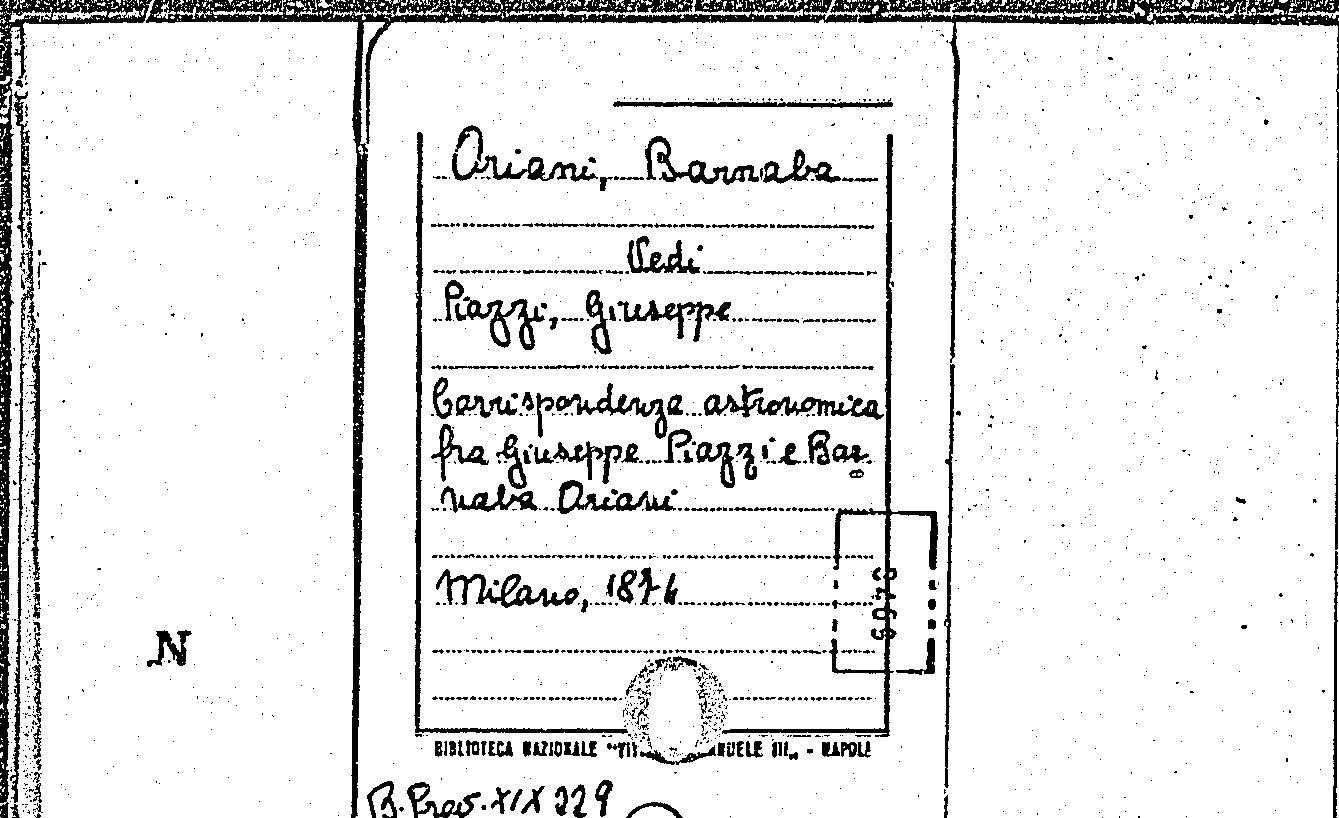 Oriani, Barnaba
Vedi
Piazzi, Giuseppe
Corrispondenza astronomica
fra Giuseppe Piazzi e Bar
naba Oriani
Milano, 1874
N
BIBLIOTECA NAZIONALE "VIT ANUELE III„ - NAPOLI
B. Prov. XIX 229